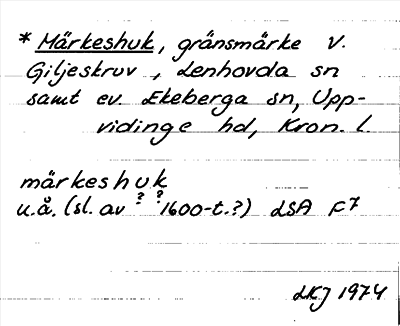 * Märkeshuk, gränsmärke V.
Giljeskruv, Lenhovda sn
samt ev. Ekeberga sn, Upp-
vidinge hd, Kron. l.
märkeshuk
? ?
u.å. (sl. av 1600-t.?) LSA F7
LKJ 1974